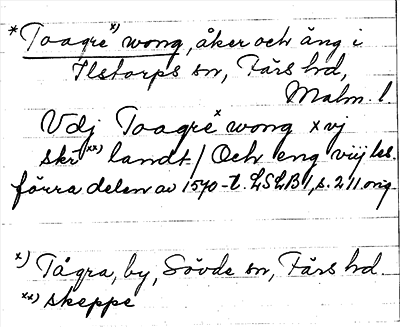 *Toagre x) wong, åker och äng i
Ilstorps sn, Färs hd,
Malm. l.
Vdj Toagre x wong xvj
skr xx) landt / Och eng viij les.
förra delen av 1570-t. LSLB 1, s. 211 orig.
x) Tågra, by, Sövde sn, Färs hd.
xx) skeppe